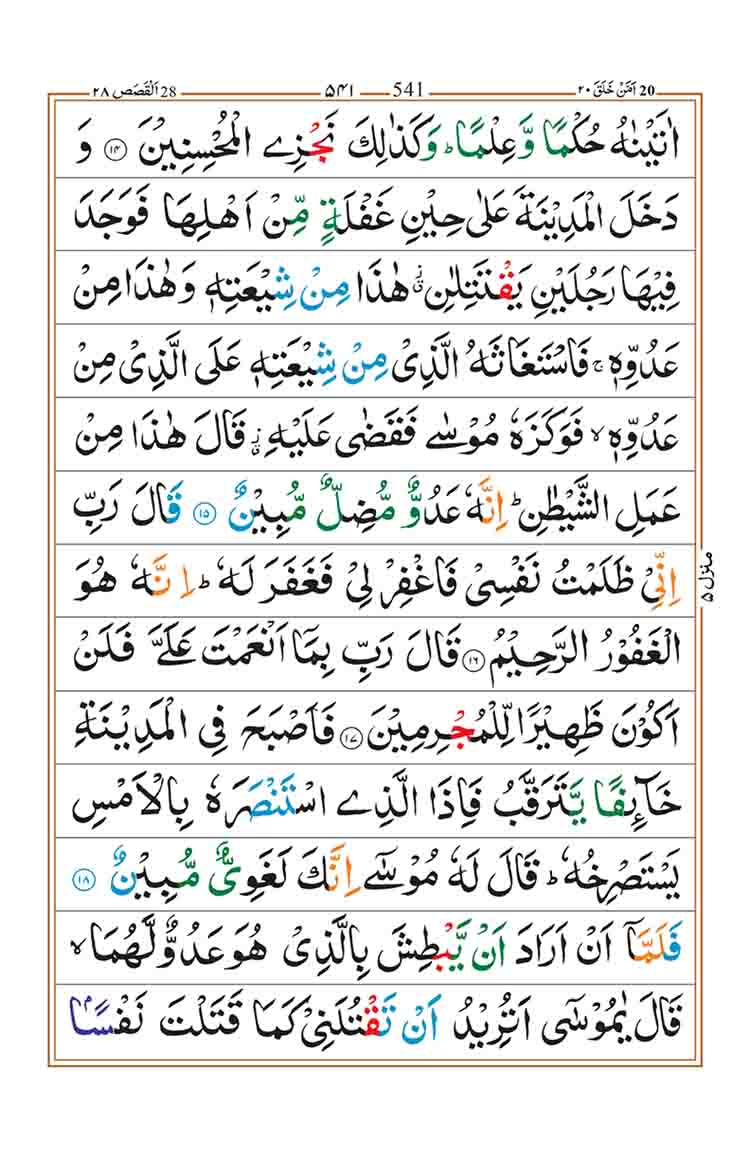 20 اَمَّنْ خَلَقَ ۲۰ 541 ۵۴۱ 28 اَلْقَصَص ۲۸
اٰتَيْنٰهُ حُكْمًا وَّعِلْمًا ؕ وَكَذٰلِكَ نَجْزِی الْمُحْسِنِيْنَ ﴿۱۴﴾ وَ
دَخَلَ الْمَدِيْنَةَ عَلٰى حِيْنِ غَفْلَةٍ مِّنْ اَهْلِهَا فَوَجَدَ
فِيْهَا رَجُلَيْنِ يَقْتَتِلٰنِ ۖ ؗ هٰذَا مِنْ شِيْعَتِهٖ وَهٰذَا مِنْ
عَدُوِّهٖ ۚ فَاسْتَغَاثَهُ الَّذِیْ مِنْ شِيْعَتِهٖ عَلَى الَّذِیْ مِنْ
عَدُوِّهٖ ۙ فَوَكَزَهٗ مُوْسٰى فَقَضٰى عَلَيْهِ ۖ ؗ قَالَ هٰذَا مِنْ
عَمَلِ الشَّيْطٰنِ ؕ اِنَّهٗ عَدُوٌّ مُّضِلٌّ مُّبِيْنٌ ﴿۱۵﴾ قَالَ رَبِّ
اِنِّیْ ظَلَمْتُ نَفْسِیْ فَاغْفِرْ لِیْ فَغَفَرَ لَهٗ ؕ اِنَّهٗ هُوَ
الْغَفُوْرُ الرَّحِيْمُ ﴿۱۶﴾ قَالَ رَبِّ بِمَاۤ اَنْعَمْتَ عَلَیَّ فَلَنْ
اَكُوْنَ ظَهِيْرًا لِّلْمُجْرِمِيْنَ ﴿۱۷﴾ فَاَصْبَحَ فِی الْمَدِيْنَةِ
خَآئِفًا يَّتَرَقَّبُ فَاِذَا الَّذِی اسْتَنْصَرَهٗ بِالْاَمْسِ
يَسْتَصْرِخُهٗ ؕ قَالَ لَهٗ مُوْسٰۤى اِنَّكَ لَغَوِیٌّ مُّبِيْنٌ ﴿۱۸﴾
فَلَمَّاۤ اَنْ اَرَادَ اَنْ يَّبْطِشَ بِالَّذِیْ هُوَ عَدُوٌّ لَّهُمَا ۙ
قَالَ يٰمُوْسٰۤى اَتُرِيْدُ اَنْ تَقْتُلَنِیْ كَمَا قَتَلْتَ نَفْسًۢا
منزل ۵